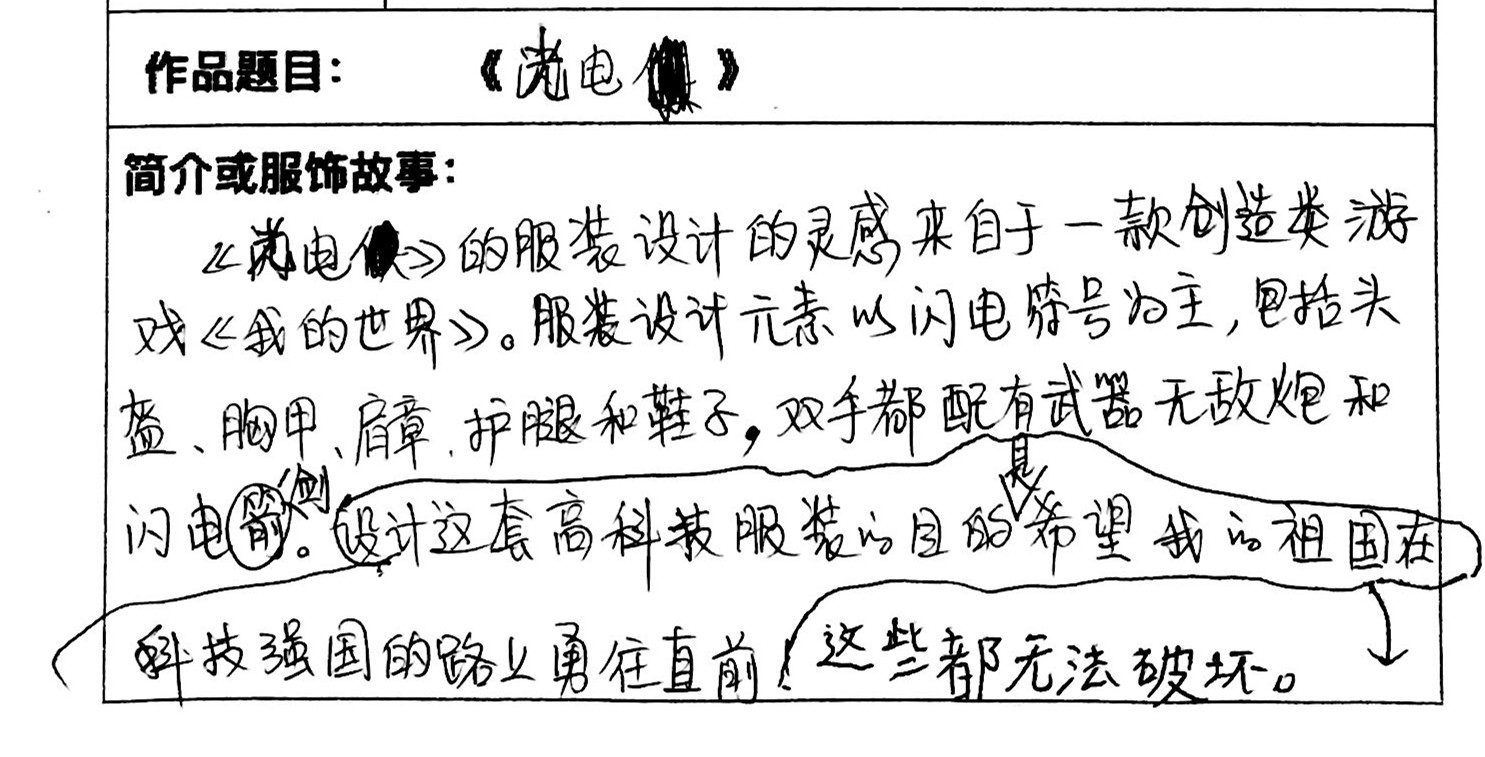 作品题目：《光电侠》
简介或服饰故事：
《光电侠》的服装设计的灵感来自于一款创造类游
戏《我的世界》。服装设计元素以闪电符号为主，包括头
盔、胸甲、肩章、护腿和鞋子，双手都配有武器无敌炮和
剑 是
闪电箭。设计这套高科技服装的目的希望我的祖国在
科技强国的路上勇往直前！这些都无法破坏。